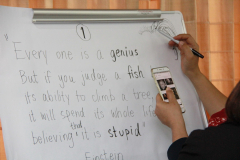 1
"Every one is a genius
But if you judge a fish
its ability to climb a tree,
it will spend its whole life
that
believing it is stupid"
Einstein